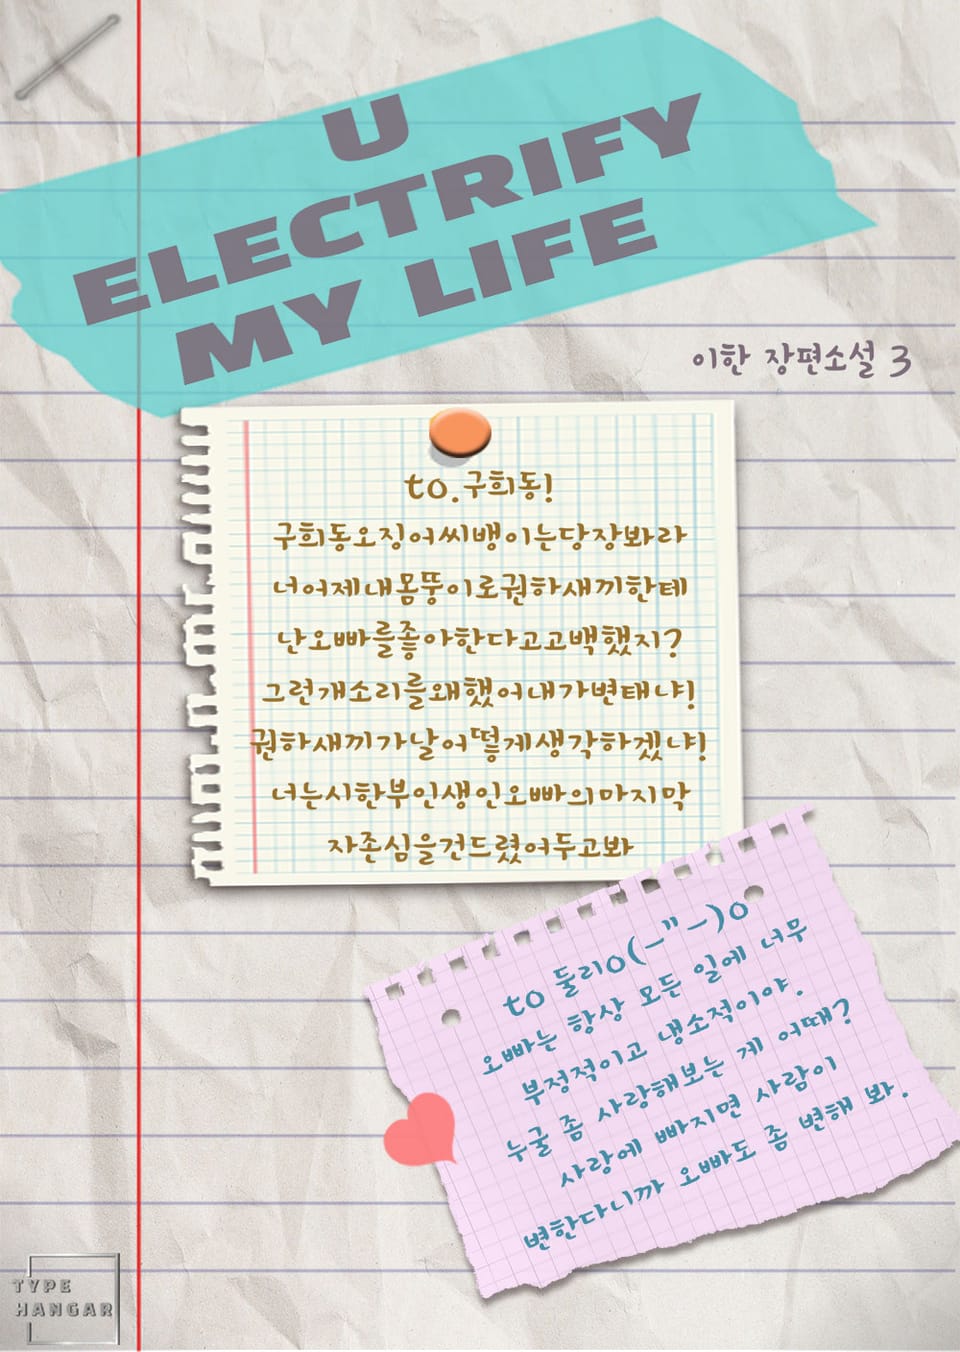 U
ELECTRIFY
MY LIFE
이한 장편소설 3
to.구희동!
구희동오징어씨뱅이는당장봐라
너어제내몸뚱이로권하새끼한테
난오빠를좋아한다고고백했지?
그런개소리를왜했어내가변태냐!
권하새끼가날어떻게생각하겠냐!
너는시한부인생인오빠의마지막
자존심을건드렸어두고봐
to 둘리o(-"-)o
오빠는 항상 모든 일에 너무
부정적이고 냉소적이야.
누굴 좀 사랑해보는 게 어때?
사랑에 빠지면 사람이
변한다니까 오빠도 좀 변해 봐.
TYPE
HANGAR